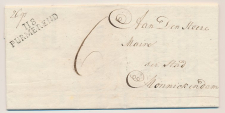 118
PURMEREND
6
Van Den Heere
Maire
der Stad
Monnickendam